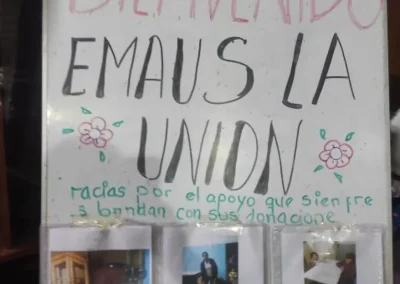 BIENVENIDO
EMAUS LA
UNION
racias por el apoyo que sienpre
s brindan con sus donacione